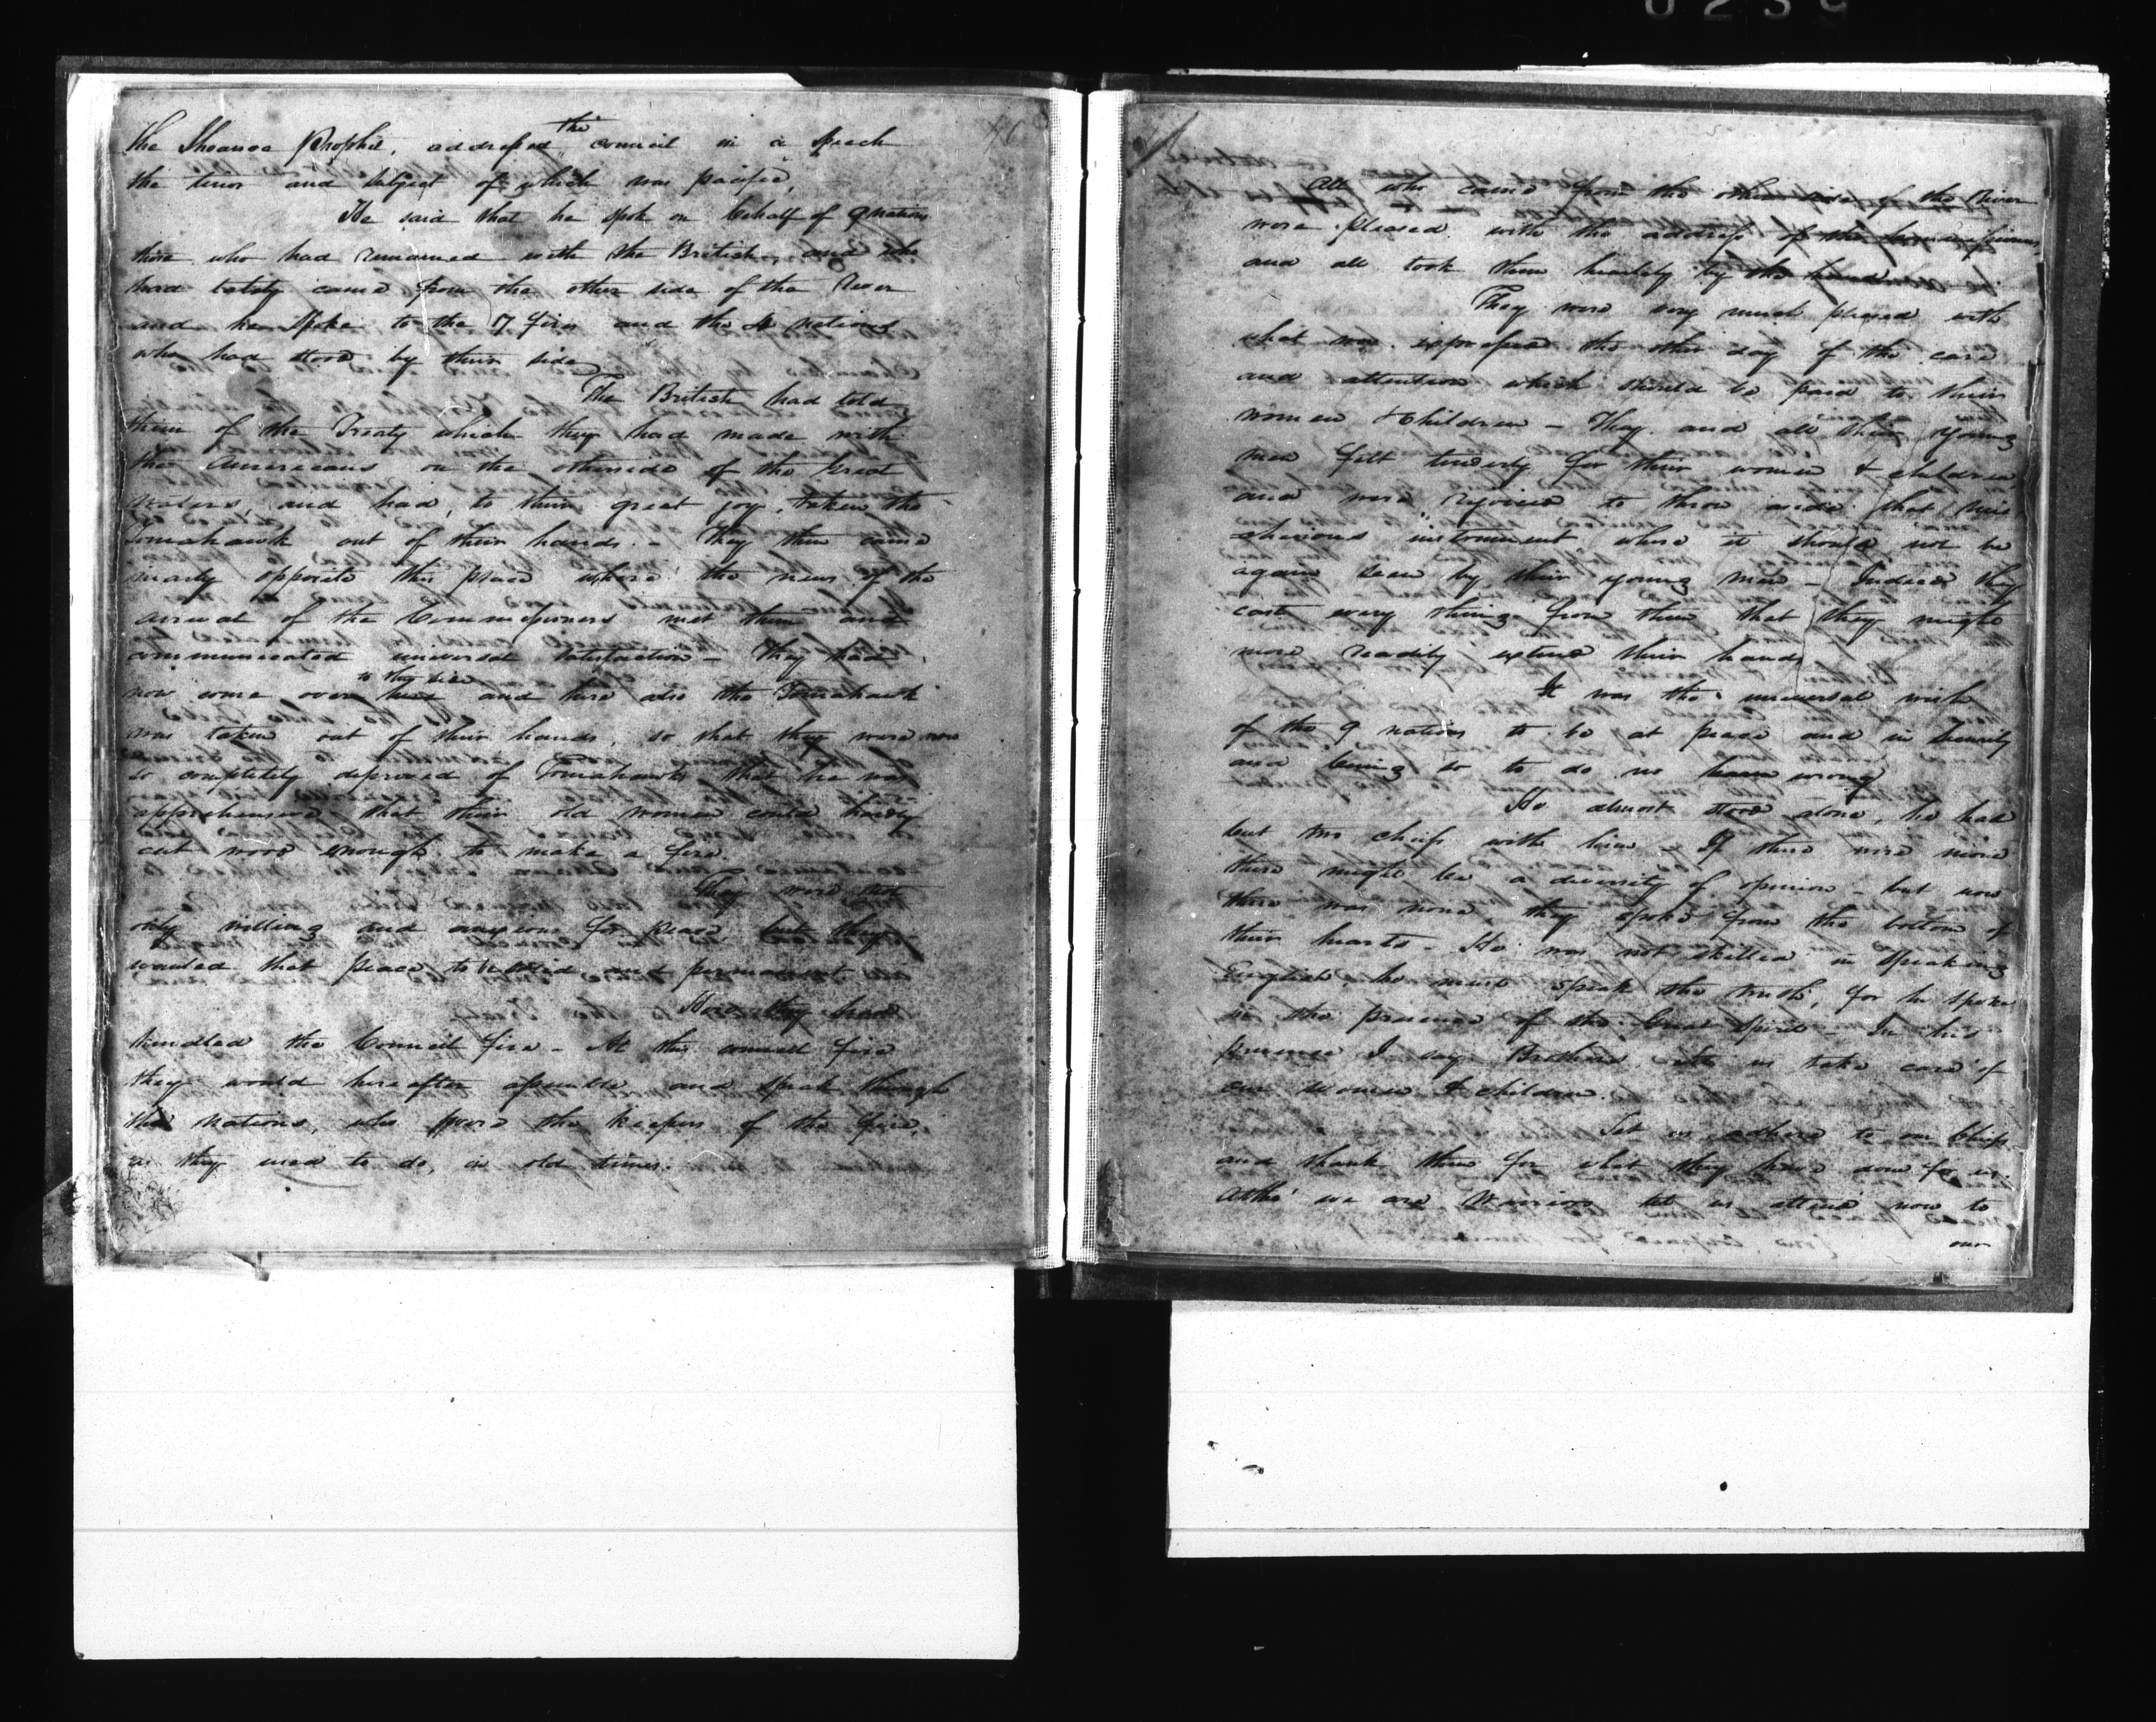 0239
the Sheanoe Prophet, addressed the council in a Speech
the tenor and subject of which was pacific,
He said that he spok on behalf of 9 nations
those who had remained with the British, and who
had lately came from the other side of the River
and he spoke to the 7 fires and the 4 nations
who had stood by their side
The British had told
them of the Treaty which they had made with
the Americans on the otherside of the Great
waters, and had, to their great joy, taken the
Tomahawk out of their hands. - They then came
nearly opposite this place where the news of the
arrival of the Commissioners met them and
communicated universal Satisfaction - They had
now come over to this side and here also the Tomahawk
was taken out of their hands, so that they were now
so completely deprived of Tomahawks that he was
apprehensive that their old women could hardly
cut wood enough to make a fire.
They were not
only willing and anxious for peace but they
wanted that peace to be solid and permanent
Here they had
kindled the Council fire - At this council fire
they would hereafter assemble and speak through
the nations, who were the keepers of the fire,
as they used to do, in old times.
All who came from the other side of the River
were pleased with the address of the
and all took them heartily by the hand
They were very much pleased with
what was expressed the other day of the care
and attention which should be paid to their
women & Children - They and all their young
men felt tenderly for their women & children
and were rejoiced to throw aside that mis-
chievous instrument where it should not be
again seen by their young men - Indeed they
cast every thing from them that they might
more readily extend their hands
It was the universal wish
of the 9 nations to be at peace and in security
and being so to do no harm wrong
He almost stood alone, he had
but two chiefs with him - If there were more
there might be a diversity of opinion - but now
there was none, they spoke from the bottom of
their hearts - He was not skilled in speaking
English, he must speak the truth, for he spoke
in the presence of the Great Spirit - In his
presence I say Brothers, let us take care of
our women & children.
Let us adhere to our Chiefs
and thank them for what they have done for us.
Altho' we are Warriors let us attend now to
our